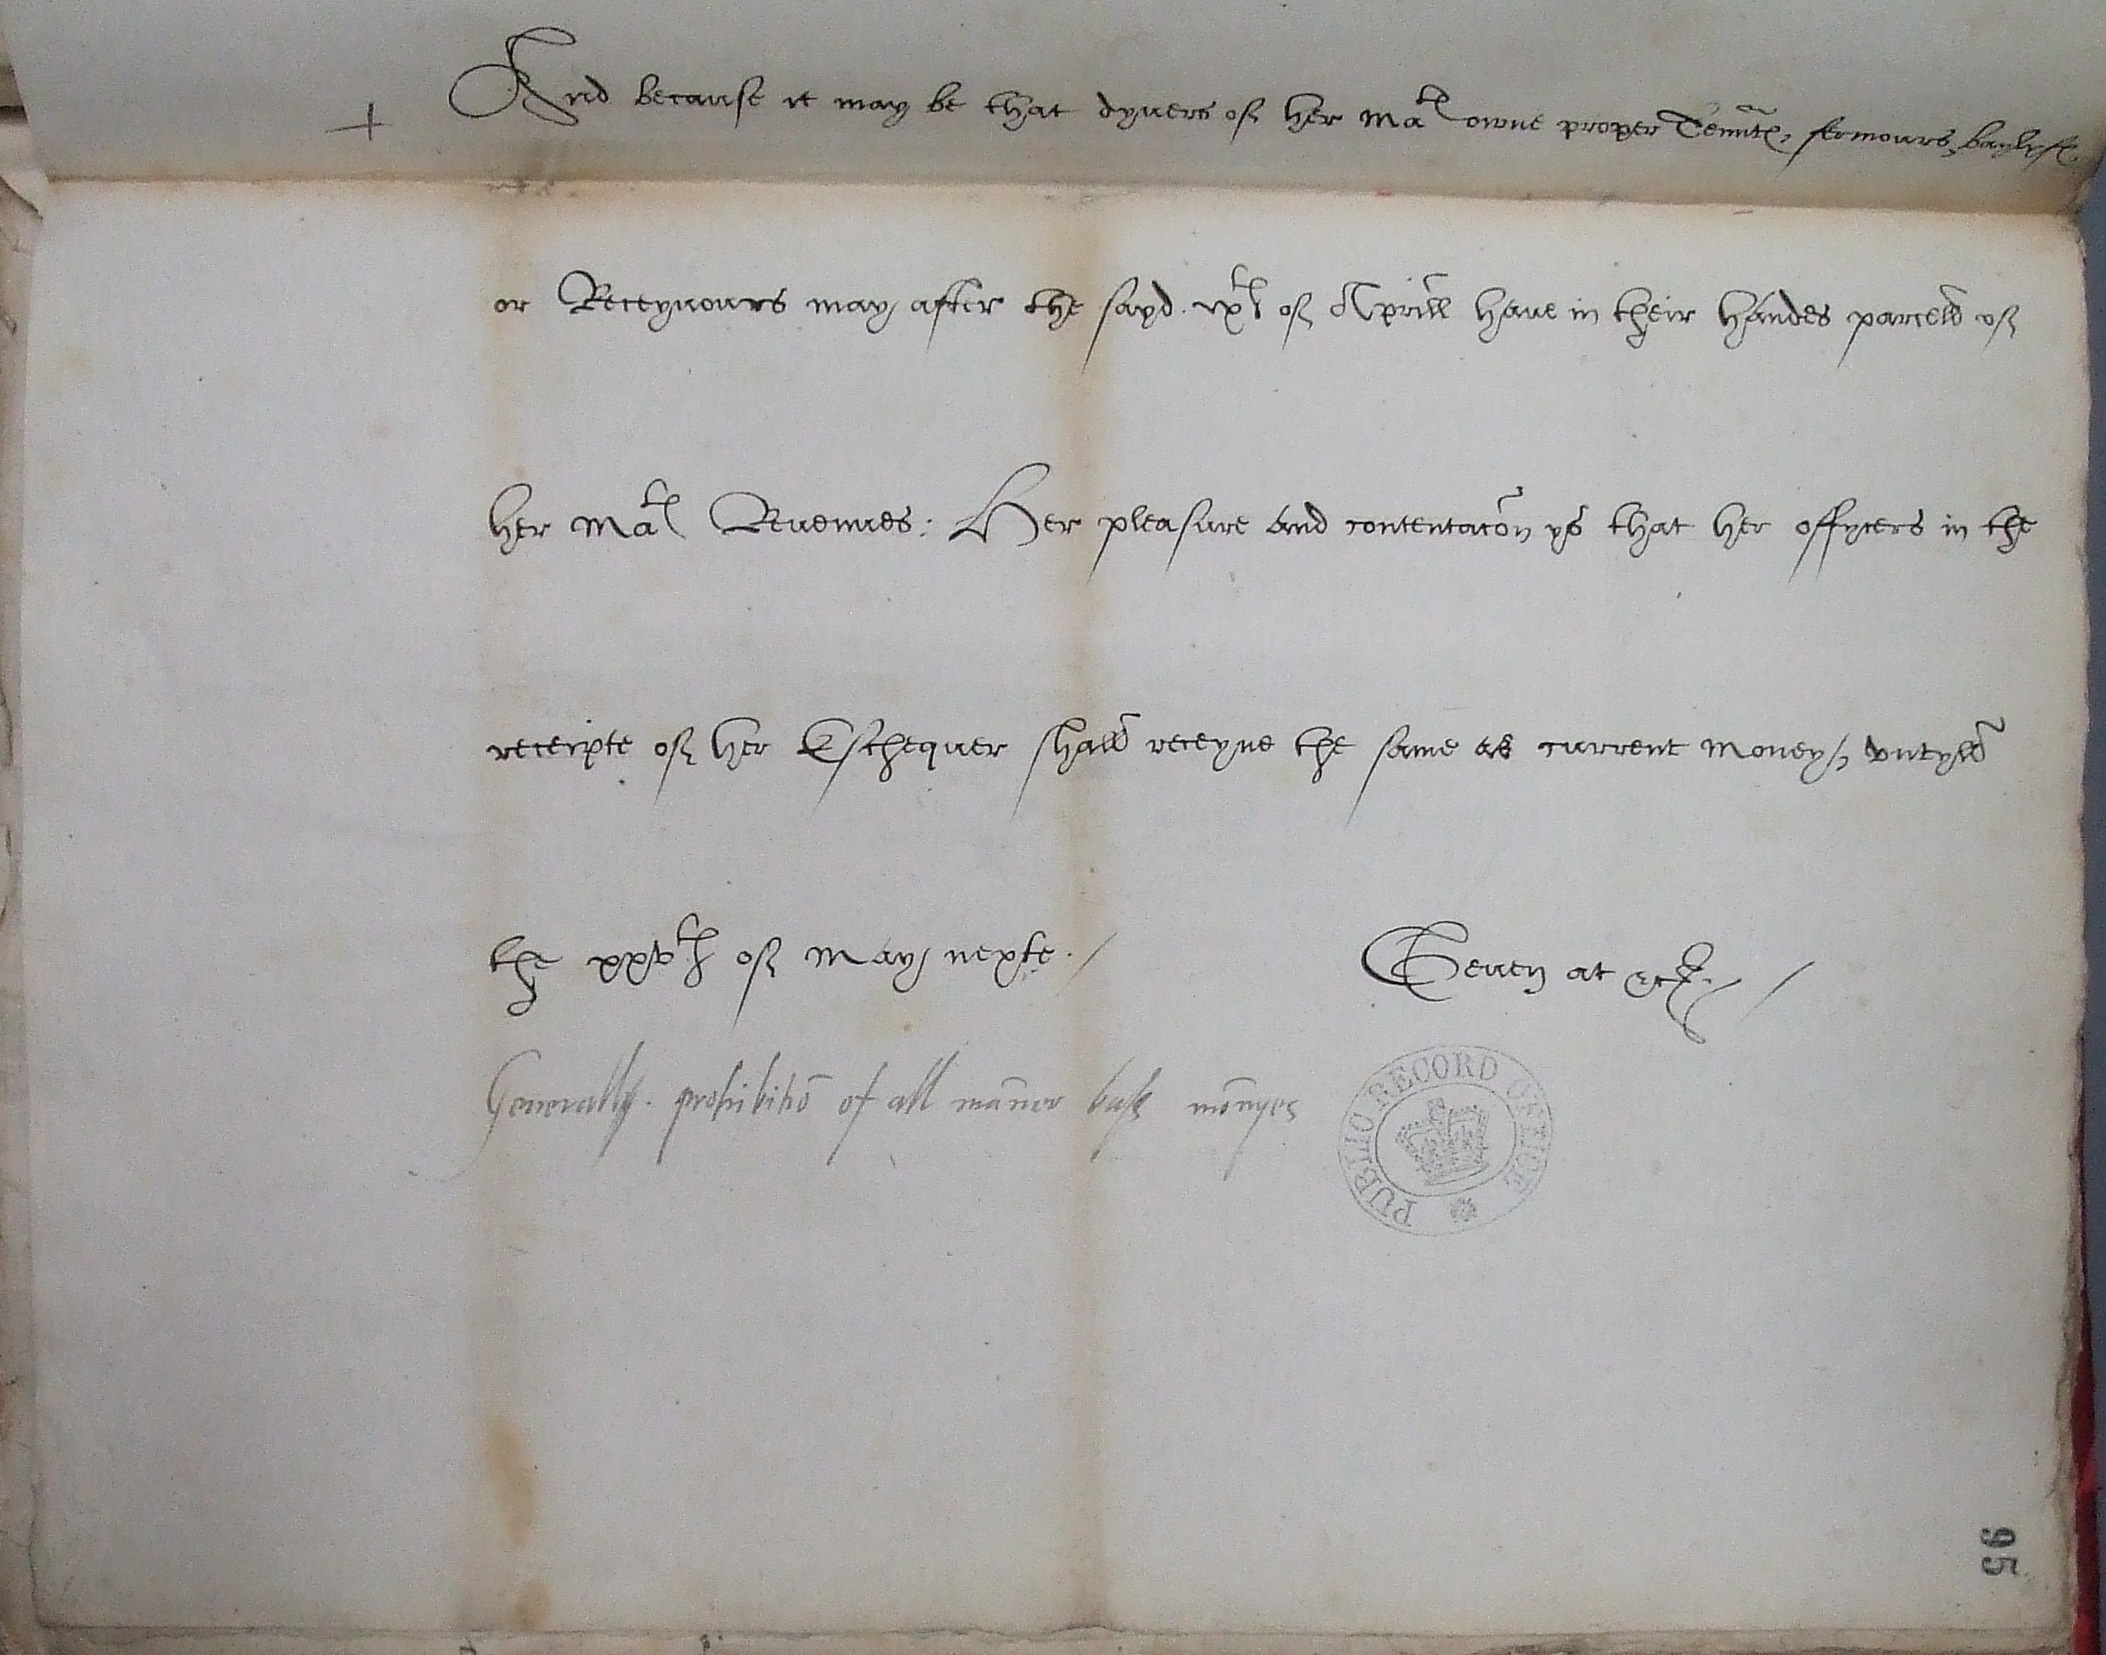 + And because it may be that dyuers of her Matꝭ owne proper Tenntꝭ, fermours, baylyffꝭ
or Receyuours may after the sayd. ixth of Aprill haue in their handes parcell of
her Matꝭ Reuenues: Her pleasure and contentacõn ys that her offycers in the
receipte of her Eschequer shall receyue the same as current money, vntyll
the xxvth of May nexte./ Geuen at &c./
Generally. prohibitiõ of all mãner base mõnyes
PUBLIC RECORD OFFICE
95